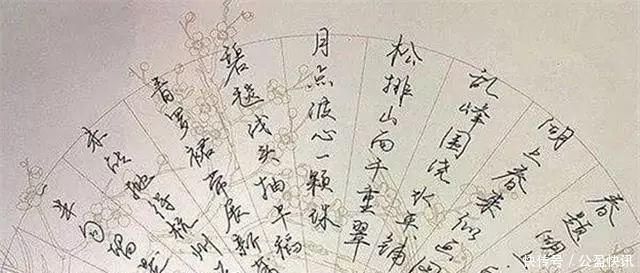 春题湖
湖上春来似画图
乱峰围绕水平铺
松排山面千重翠
月点波心一颗珠
碧毯线头抽早稻
青罗裙带展新蒲
未能抛得杭州
半勾留是
快传号 / 公盈快讯